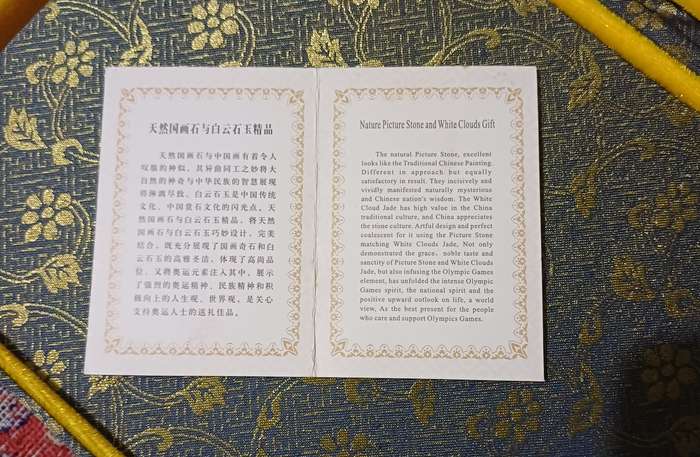 天然国画石与白云石玉精品
天然国画石与中国画有着令人
叹服的神似，其异曲同工之妙将大
自然的神奇与中华民族的智慧展现
得淋漓尽致。白云石玉是中国传统
文化、中国赏石文化的闪光点。天
然国画石与白云石玉精品，将天然
国画石与白云石玉巧妙设计、完美
结合。既充分展现了国画奇石和白
云石玉的高雅圣洁，体现了高尚品
位，又将奥运元素注入其中，展示
了强烈的奥运精神、民族精神和积
极向上的人生观、世界观，是关心
支持奥运人士的送礼佳品。
Nature Picture Stone and White Clouds Gift
The natural Picture Stone, excellent
looks like the Traditional Chinese Painting.
Different in approach but equally
satisfactory in result. They incisively and
vividly manifested naturally mysterious
and Chinese nation's wisdom. The White
Cloud Jade has high value in the China
traditional culture, and China appreciates
the stone culture. Artful design and perfect
coalescent for it using the Picture Stone
matching White Clouds Jade, Not only
demonstrated the grace, noble taste and
sanctity of Picture Stone and White Clouds
Jade, but also infusing the Olympic Games
element, has unfolded the intense Olympic
Games spirit, the national spirit and the
positive upward outlook on life, a world
view, As the best present for the people
who care and support Olympics Games.